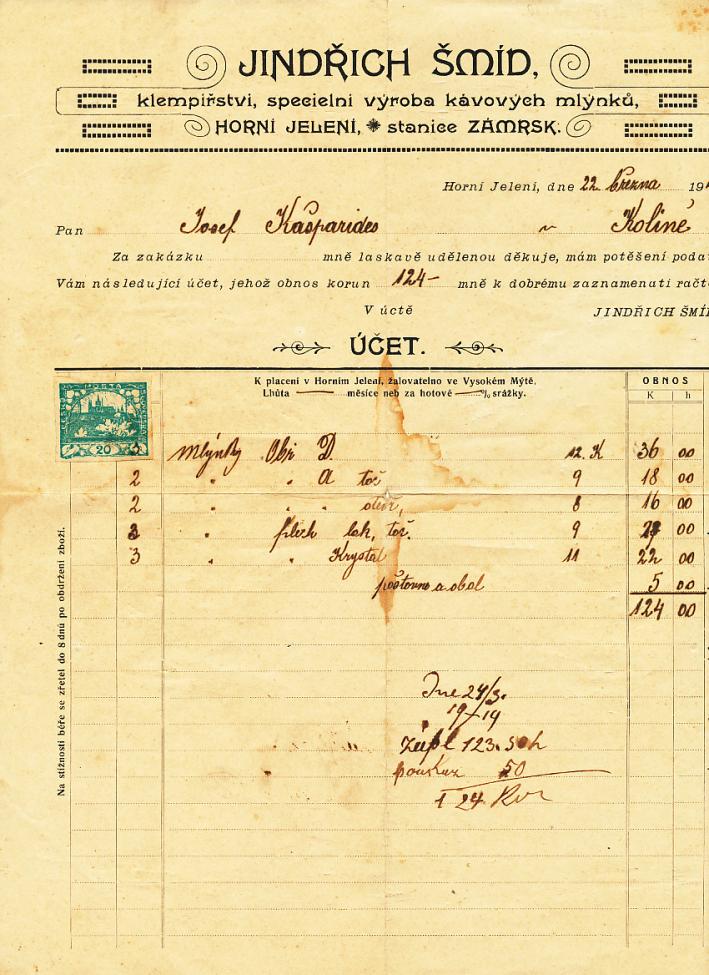 JINDŘICH ŠMÍD,
klempířství, specielní výroba kávových mlýnků,
HORNÍ JELENÍ, stanice ZÁMRSK.
Horní Jelení, dne 22. března 19
Pan Josef Kašparides v Kolíně
Za zakázku mně laskavě udělenou děkuje, mám potěšení podat
Vám následující účet, jehož obnos korun 124- mně k dobrému zaznamenati račte
V úctě JINDŘICH ŠMÍD
ÚČET.
K placení v Horním Jelení, žalovatelno ve Vysokém Mýtě.
Lhůta měsíce neb za hotové % srážky.
OBNOS
K h
POŠTA
20
3 Mlýnky Obr D. 12. K 36 00
2 " " A toč 9 18 00
2 " " " 8 16 00
3 " plech toč. 9 27 00
3 " " Krystal 11 22 00
poštovno a obal 5 00
124 00
Dne 24/3.
19-19
zapl 123.50h
poukaz 50
124 Kor
Na stížnosti béře se zřetel do 8 dnů po obdržení zboží.